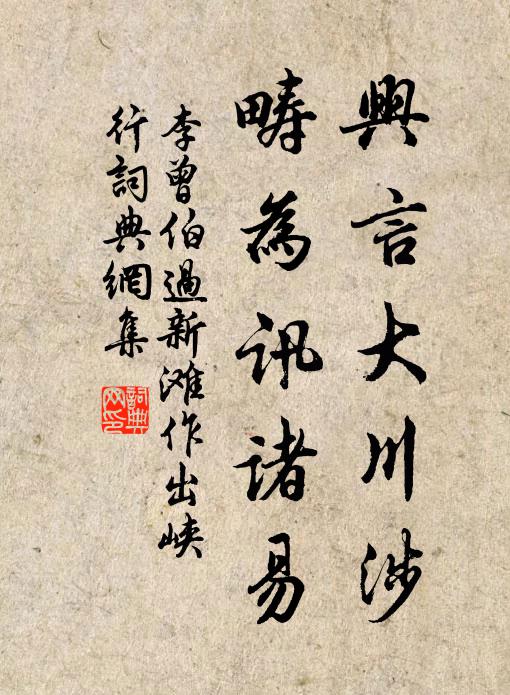 興言大川涉
疇為訊諸易
李曾伯過新滩作出峽
行詞典網集
詞典
网印